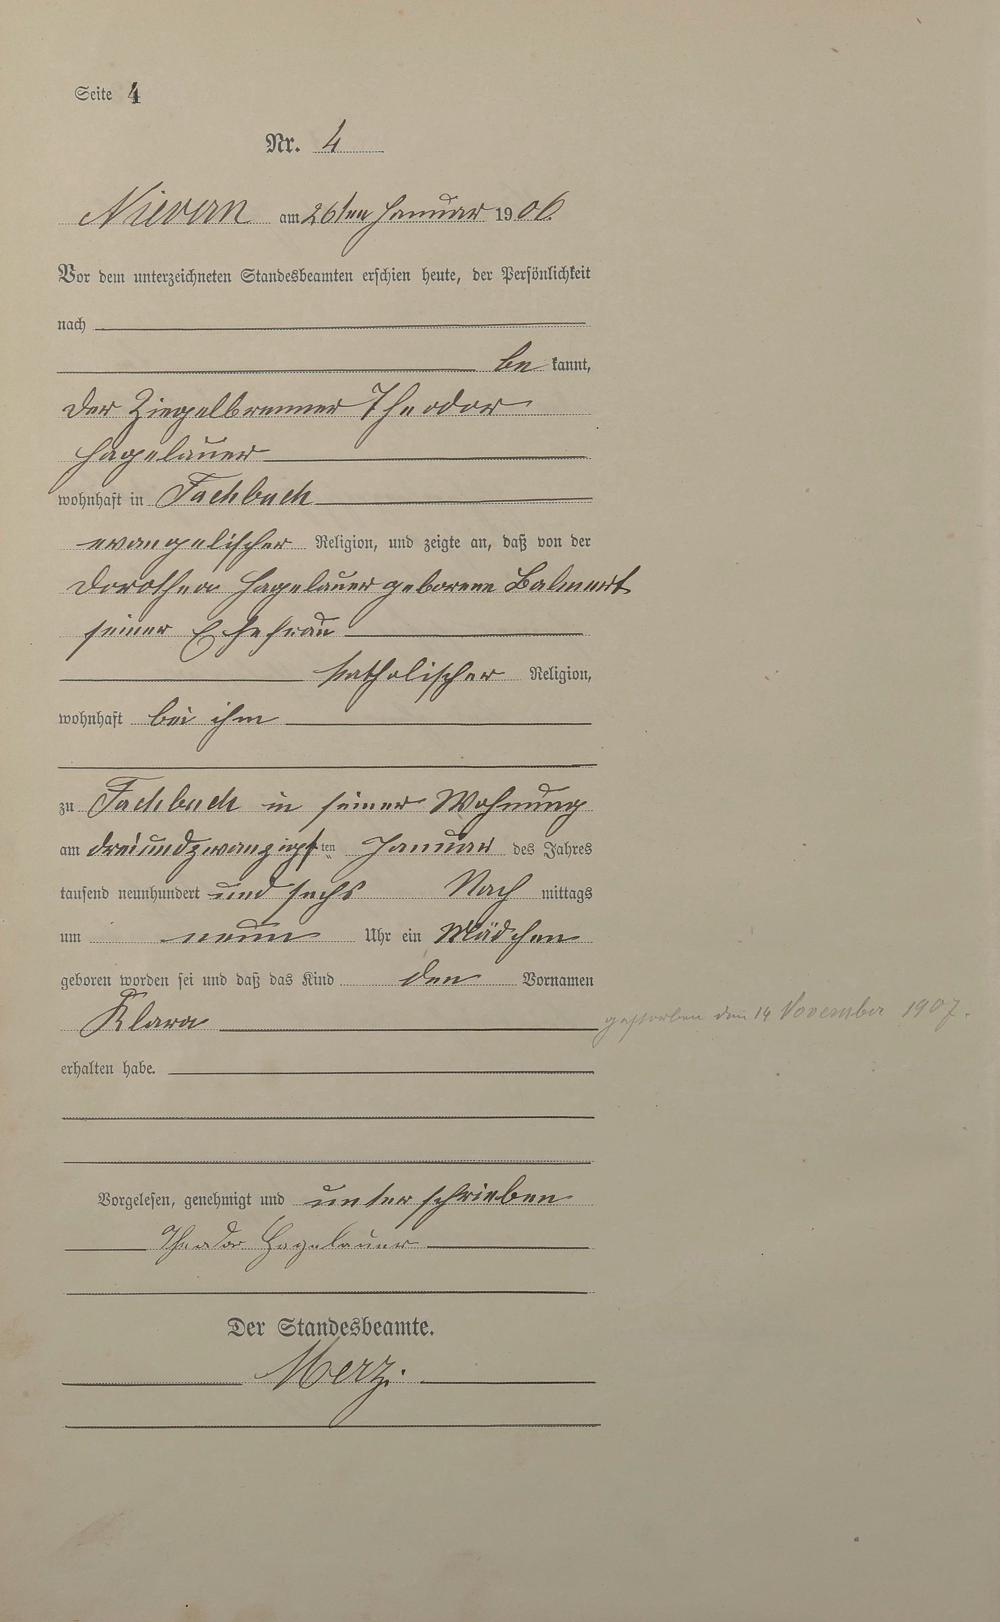 Seite 4
Nr. 4
Nievern am 26ten Januar 1906
Vor dem unterzeichneten Standesbeamten erschien heute, der Persönlichkeit
nach
be kannt,
der Ziegelbrenner Theodor
Hagelauer
wohnhaft in Fachbach
evangelischer Religion, und zeigte an, daß von der
Dorothea Hagelauer geborene Balmert
seiner Ehefrau
katholischer Religion,
wohnhaft bei ihm
zu Fachbach in seiner Wohnung
am dreiundzwanzigsten Januar des Jahres
tausend neunhundert und sechs Nach mittags
um neun Uhr ein Mädchen
geboren worden sei und daß das Kind den Vornamen
Klara
gestorben den 14 November 1907.
erhalten habe.
Vorgelesen, genehmigt und unterschrieben
Theodor Hagelauer
Der Standesbeamte.
Merz.